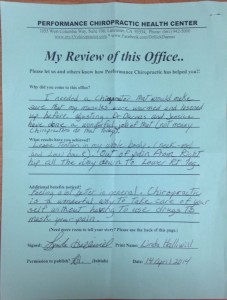 PERFORMANCE CHIROPRACTIC HEALTH CENTER
My Review of this Office..
Please let us and others know how Performance Chiropractic has helped you!!
Why did you come to this office?
I needed a chiropractor that would make
sure that my muscles were warmed and loosened
up before adjusting. Dr Danner and
have done a wonderful job at that (not many
Chiropractors do that today)
What results have you achieved?
Lower tension in my whole body (neck, 
and low back). Out of pain from Right
hip all the way down to Lower Rt leg
Additional benefits noticed?
Feeling a lot better in general. Chiropractic
is a wonderful way to take care of your
self without having to use drugs to
mask your pain.
(Need more room to tell your story? Please use the back of this page.)
Signed: Print Name: Linda
Permission to publish? (Initials) Date: 14 April 2014